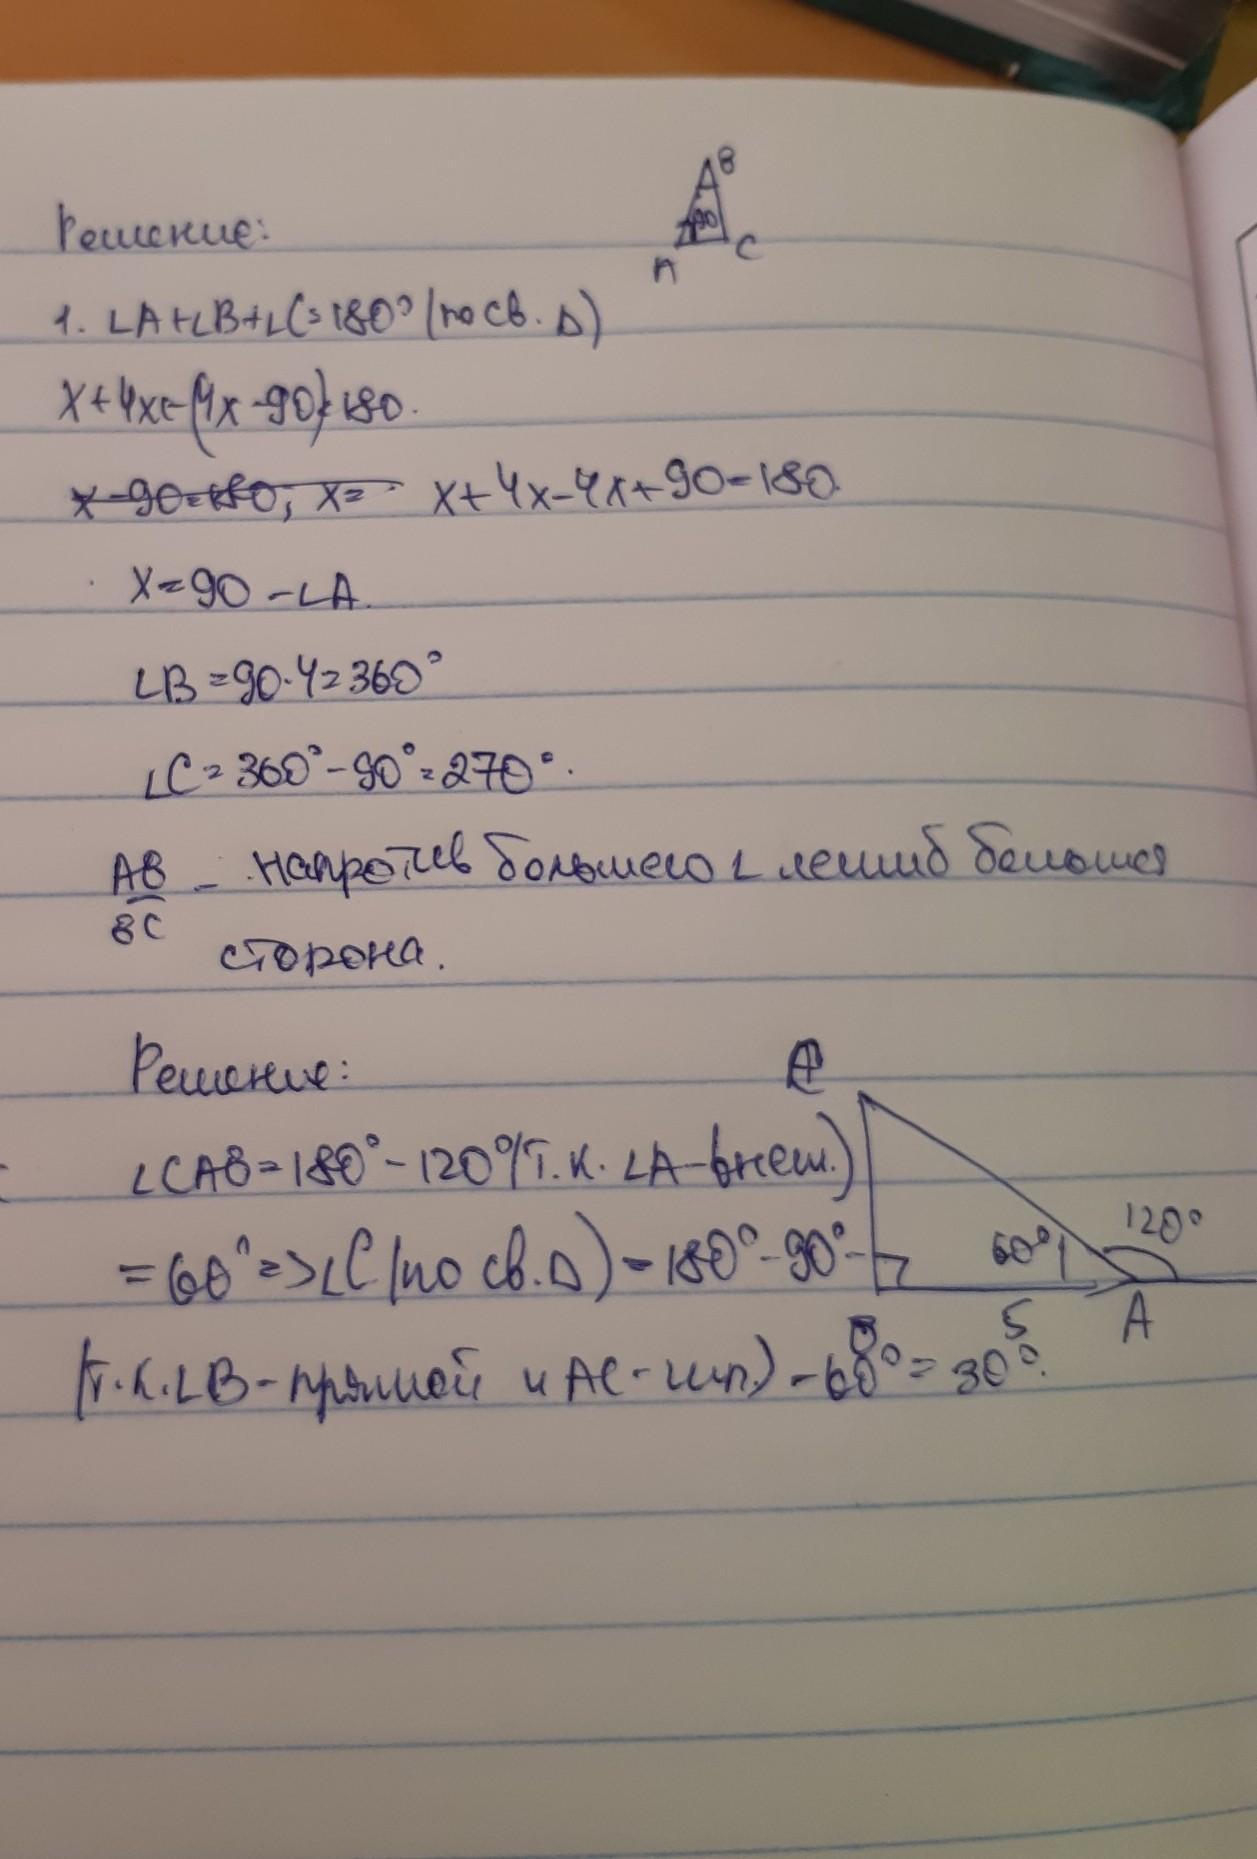 Решение:
B
90
A
C
1. ∠A+∠B+∠C=180° (по св. Δ)
x+4x-(4x-90)=180.
x-90=180; x= x+4x-4x+90=180.
x=90 -∠A.
∠B=90·4=360°
∠C=360°-90°=270°.
AB - напротив большего ∠
BC
сторона.
Решение:
∠CAB=180°-120° (т.к. ∠A-внеш.)
120°
=60°=>∠C (по св. Δ)=180°-90°-
60°
5
A
(т.к. ∠B-прямой и AC-гип.) -60°=30°.